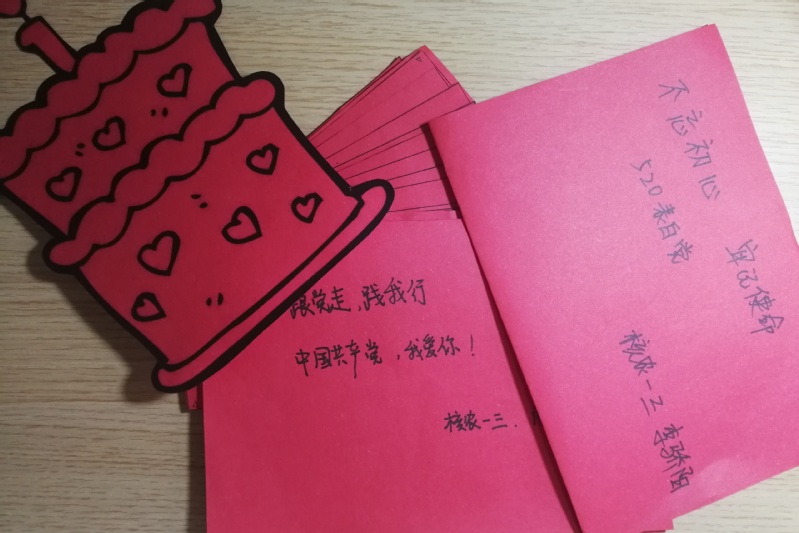 跟党走,践我行
中国共产党,我爱你!
核农一三.
不忘初心
牢记使命
520表白党
核农一二 李骄阳